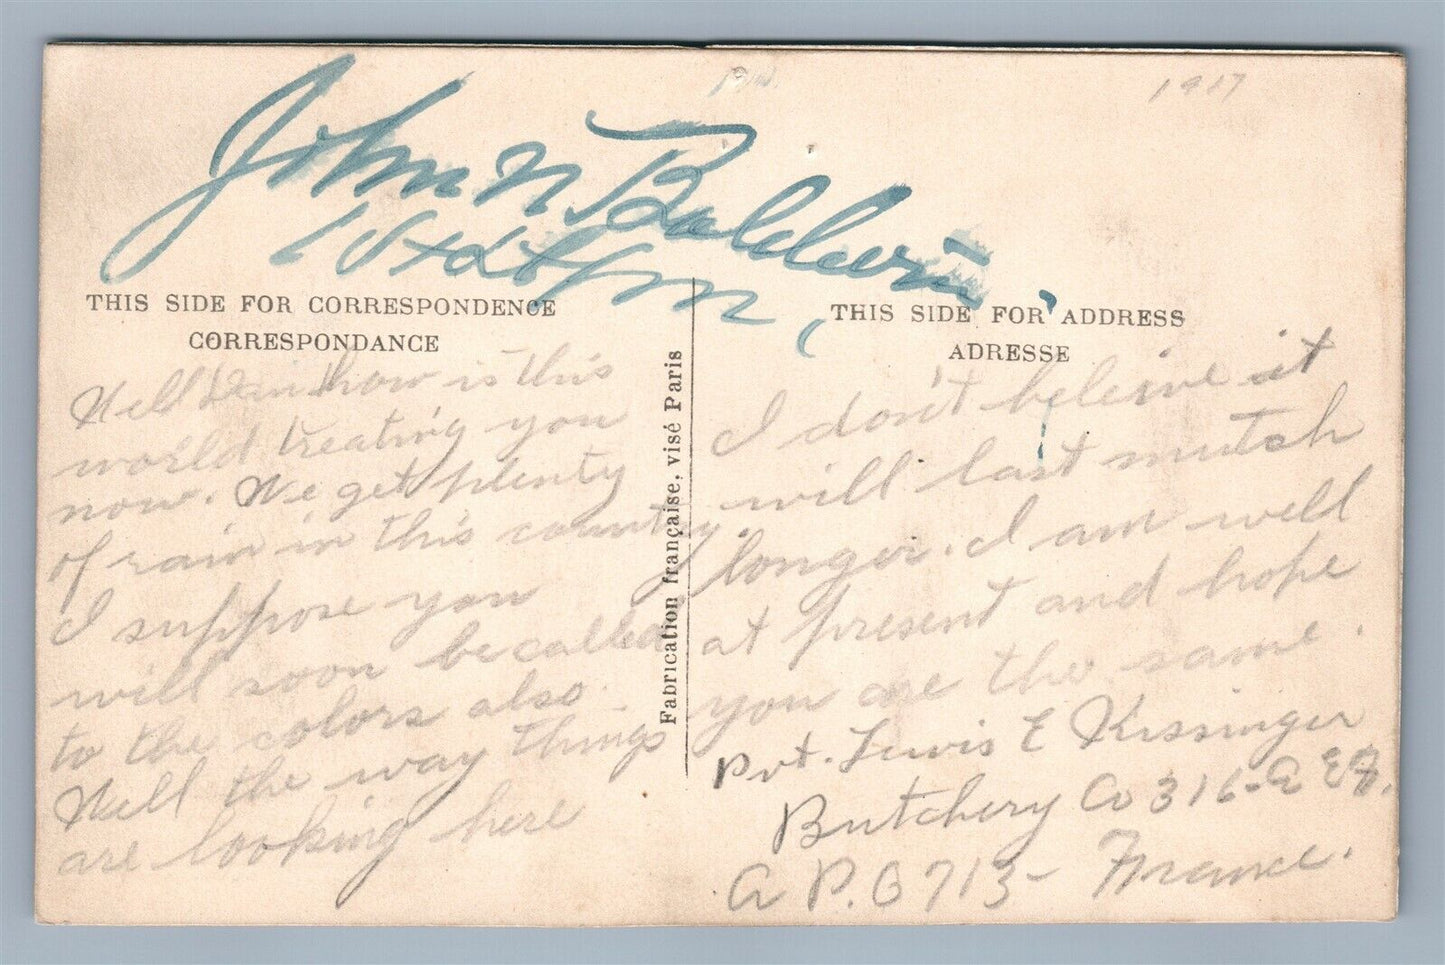 1917
John N Baldwin
1st Lt
THIS SIDE FOR CORRESPONDENCE
CORRESPONDANCE
Well how is this
world treating you
now. We get plenty
of rain in this country.
I suppose you
will soon be called
to the colors also.
Well the way things
are looking here
Fabrication française, visé Paris
THIS SIDE FOR ADDRESS
ADRESSE
I don't beleive it
will last mutch
longer. I am well
at present and hope
you are the same.
Pvt. Lewis E Kissinger
Butchery Co 316-A E F.
A P.O 713- France.